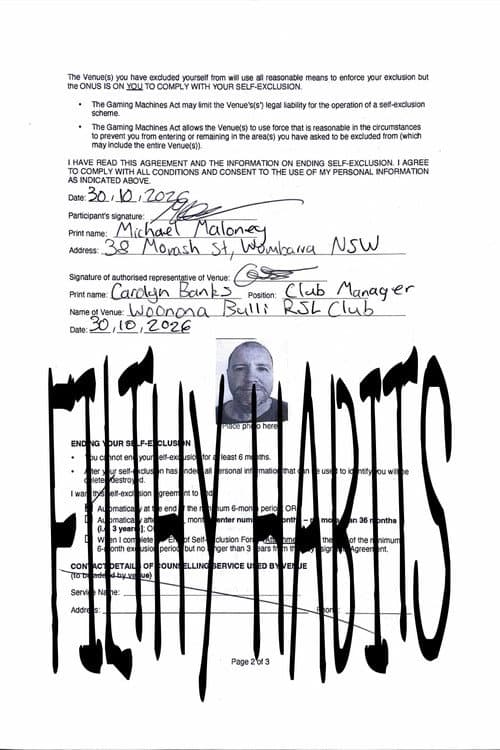 The Venue(s) you have excluded yourself from will use all reasonable means to enforce your exclusion but
the ONUS IS ON YOU TO COMPLY WITH YOUR SELF-EXCLUSION.
• The Gaming Machines Act may limit the Venue's(s') legal liability for the operation of a self-exclusion
scheme.
• The Gaming Machines Act allows the Venue(s) to use force that is reasonable in the circumstances
to prevent you from entering or remaining in the area(s) you have asked to be excluded from (which
may include the entire Venue(s)).
I HAVE READ THIS AGREEMENT AND THE INFORMATION ON ENDING SELF-EXCLUSION. I AGREE
TO COMPLY WITH ALL CONDITIONS AND CONSENT TO THE USE OF MY PERSONAL INFORMATION
AS INDICATED ABOVE.
Date: 30, 10, 2026
Participant's signature:
Print name: Michael Maloney
Address: 38 Morash St, Wombarra NSW
Signature of authorised representative of Venue:
Print name: Carolyn Banks Position: Club Manager
Name of Venue: Woonona Bulli RSL Club
Date: 30, 10, 2026
Place photo here
FILTHY HABITS
ENDING YOUR SELF-EXCLUSION
• You cannot end your self-exclusion for at least 6 months.
• After your self-exclusion has ended, all personal information that can be used to identify you will be
deleted/destroyed.
I want this self-exclusion agreement to end:
Automatically at the end of the minimum 6-month period, OR
Automatically after months enter number months – no more than 36 months
(i.e. 3 years); OR
When I complete End of Self-Exclusion Form the of the minimum
6-month exclusion period, but no longer than 3 years from the signing Agreement.
CONTACT DETAILS OF COUNSELLING SERVICE USED BY VENUE
(to be added by venue)
Service Name:
Address: Phone:
Page 2 of 3